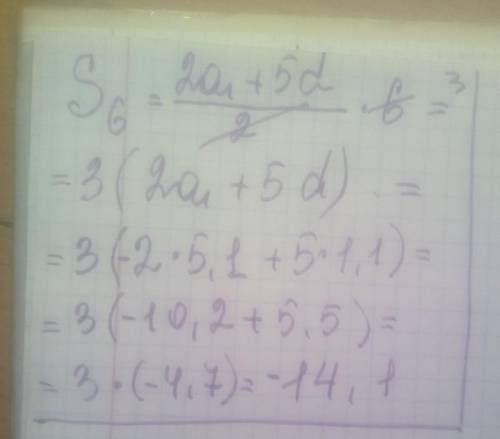 S₆ = (2a₁ + 5d)/2 · 6 = 3
= 3(2a₁ + 5d) · =
= 3(-2·5,1 + 5·1,1) =
= 3(-10,2 + 5,5) =
= 3·(-4,7) = -14,1